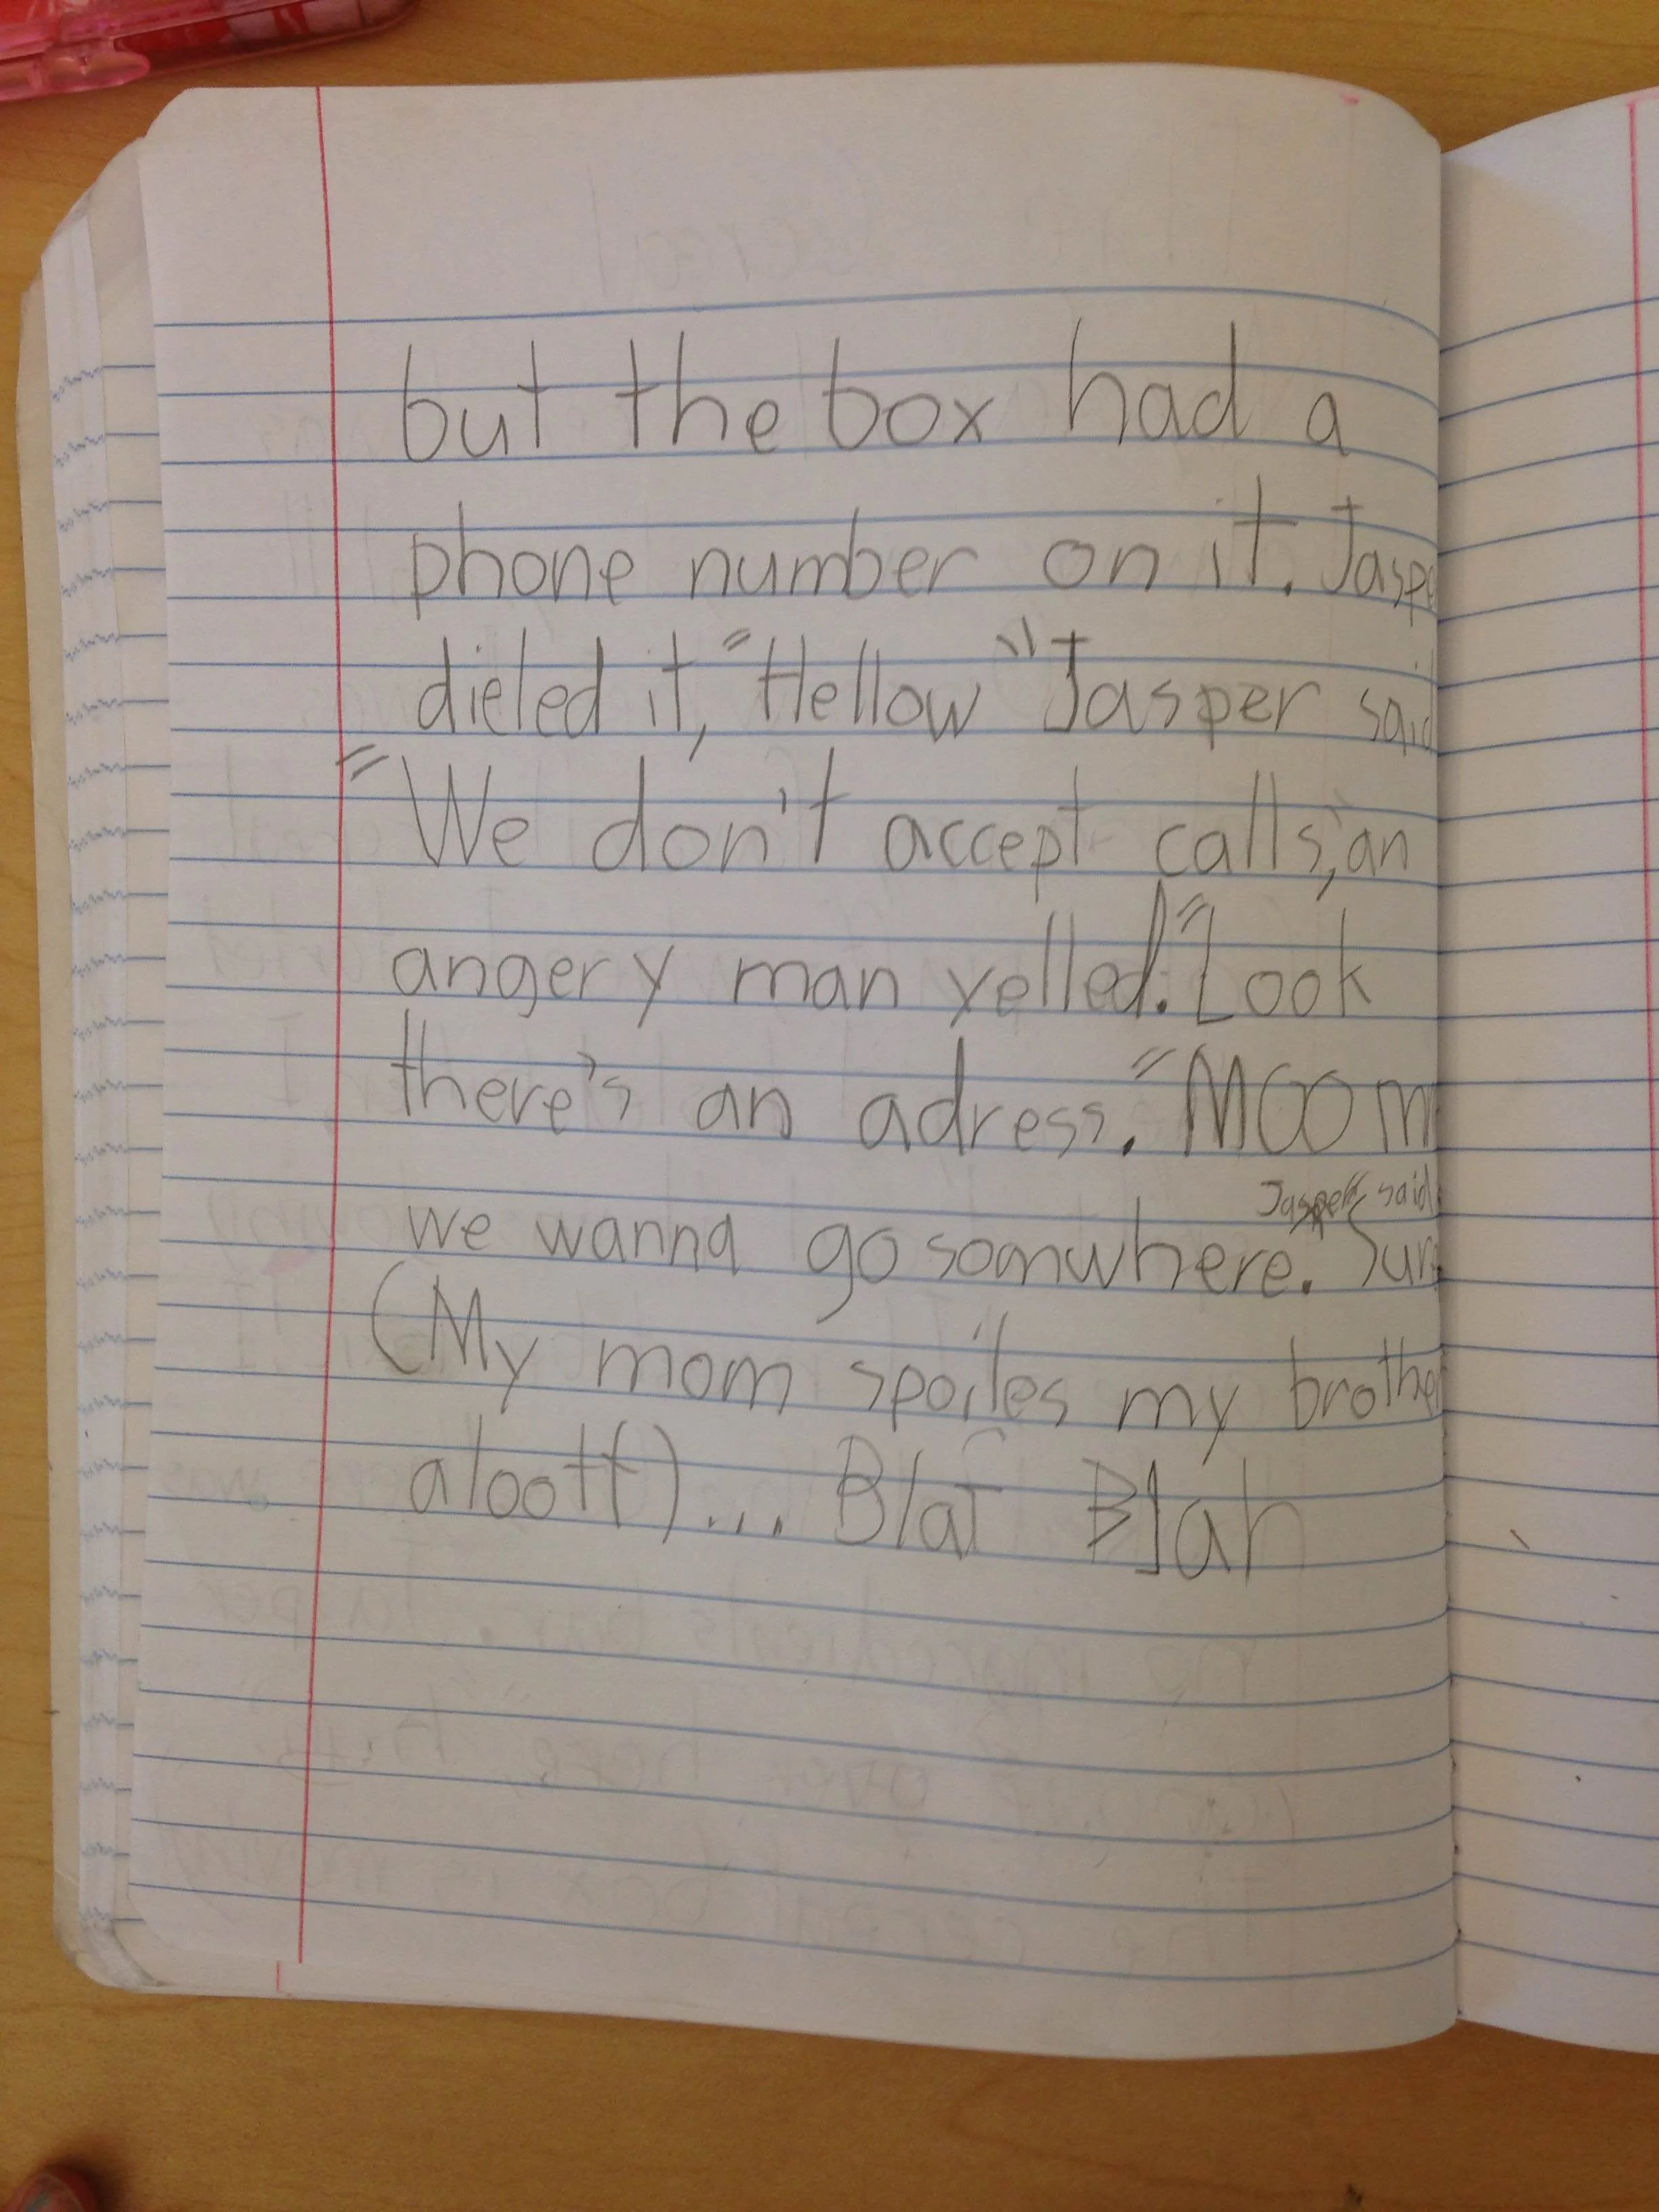 but the box had a
phone number on it. Jaspe
dieled it, "Hellow" Jasper said
"We don't accept calls," an
angery man yelled. "Look
there's an adress. "MOOm
Jasper said
we wanna go somwhere." Sure
(My mom spoiles my brother
aloott)... Blah Blah